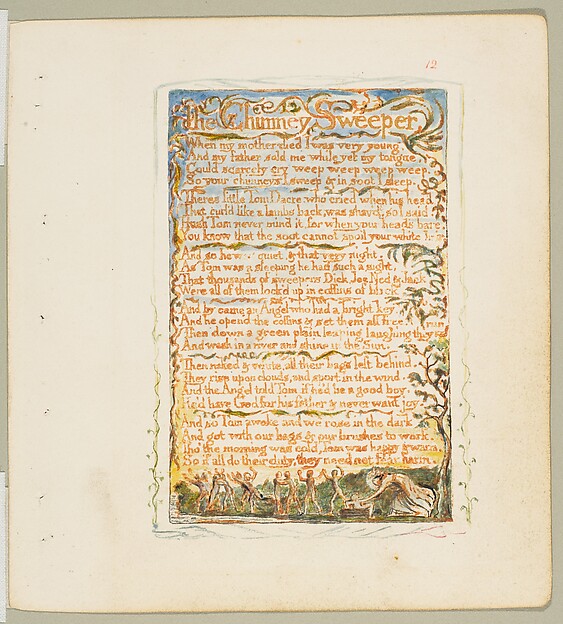 12
The Chimney Sweeper
When my mother died I was very young
And my father sold me while yet my tongue
Could scarcely cry weep weep weep weep
So your chimneys I sweep & in soot I sleep
Theres little Tom Dacre who cried when his head
That curl'd like a lambs back, was shav'd, so I said
Hush Tom never mind it, for when your heads bare
You know that the soot cannot spoil your white
And so he quiet, & that very night
As Tom was a sleeping he had such a sight
That thousands of sweepers Dick, Joe, Ned & Jack
Were all of them lock'd up in coffins of black
And by came an Angel who had a bright key
And he open'd the coffins & set them all free
Then down a green plain leaping laughing they run
And wash in a river and shine in the Sun.
Then naked & white, all their bags left behind
They rise upon clouds, and sport in the wind
And the Angel told Tom if he'd be a good boy
He'd have God for his father & never want joy
And so Tom awoke and we rose in the dark
And got with our bags & our brushes to work
Tho the morning was cold, Tom was happy & warm
So if all do their duty, they need not fear harm